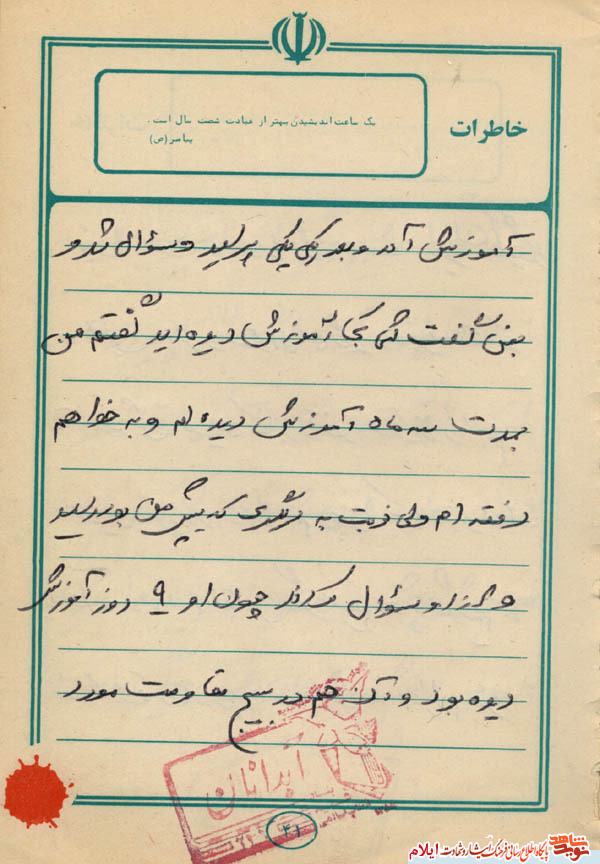 خاطرات
یک ساعت اندیشیدن بهتر از عبادت شصت سال است.
پیامبر (ص)
آموزش آمد و بعد یکی یکی پرسید و سؤال شد و
بمن گفت شما کجا آموزش دیده اید گفتم من
بمدت سه ماه آموزش دیده ام و به خواهم
رفته ام ولی نوبت به که پیش من بود رسید
و از او سؤال کردند چون او ۹ روز آموزش
دیده بود و آن هم در بسیج مقاومت مورد
آبدانان
۴۱
نوید شاهد
پایگاه اطلاع رسانی فرهنگ ایثار و شهادت ایلام